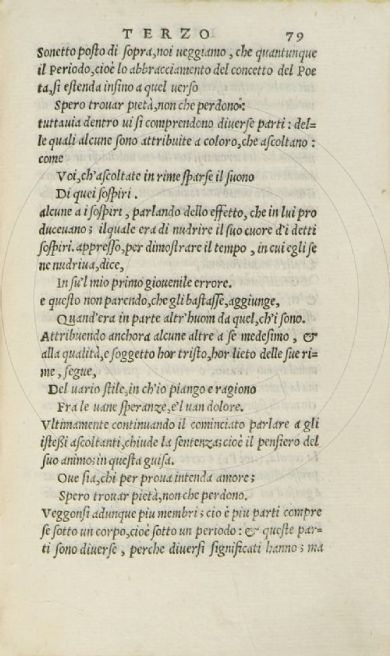 TERZO 79
Sonetto posto di sopra, noi ueggiamo, che quantunque
il Periodo, cioè lo abbracciamento del concetto del Poe
ta, si estenda insino a quel uerso
Spero trouar pietà, non che perdono:
tuttauia dentro ui si comprendono diuerse parti: del=
le quali alcune sono attribuite a coloro, che ascoltano:
come
Voi, ch'ascoltate in rime sparse il suono
Di quei sospiri.
alcune a i sospiri, parlando dello effetto, che in lui pro
duceuano; ilquale era di nudrire il suo cuore d'i detti
sospiri. appresso, per dimostrare il tempo, in cui egli se
ne nudriua, dice,
In su'l mio primo giouenile errore.
e questo non parendo, che gli bastasse, aggiunge,
Quand'era in parte altr'huom da quel, ch'i sono.
Attribuendo anchora alcune altre a se medesimo, &
alla qualità, e soggetto hor tristo, hor lieto delle sue ri=
me, segue,
Del uario stile, in ch'io piango e ragiono
Fra le uane speranze, e'l uan dolore.
Vltimamente continuando il cominciato parlare a gli
istessi ascoltanti, chiude la sentenza; cioè il pensiero del
suo animo; in questa guisa.
Oue sia, chi per proua intenda amore;
Spero trouar pietà, non che perdono.
Veggonsi adunque piu membri; cio è piu parti compre
se sotto un corpo, cioè sotto un periodo: & queste par=
ti sono diuerse, perche diuersi significati hanno; ma